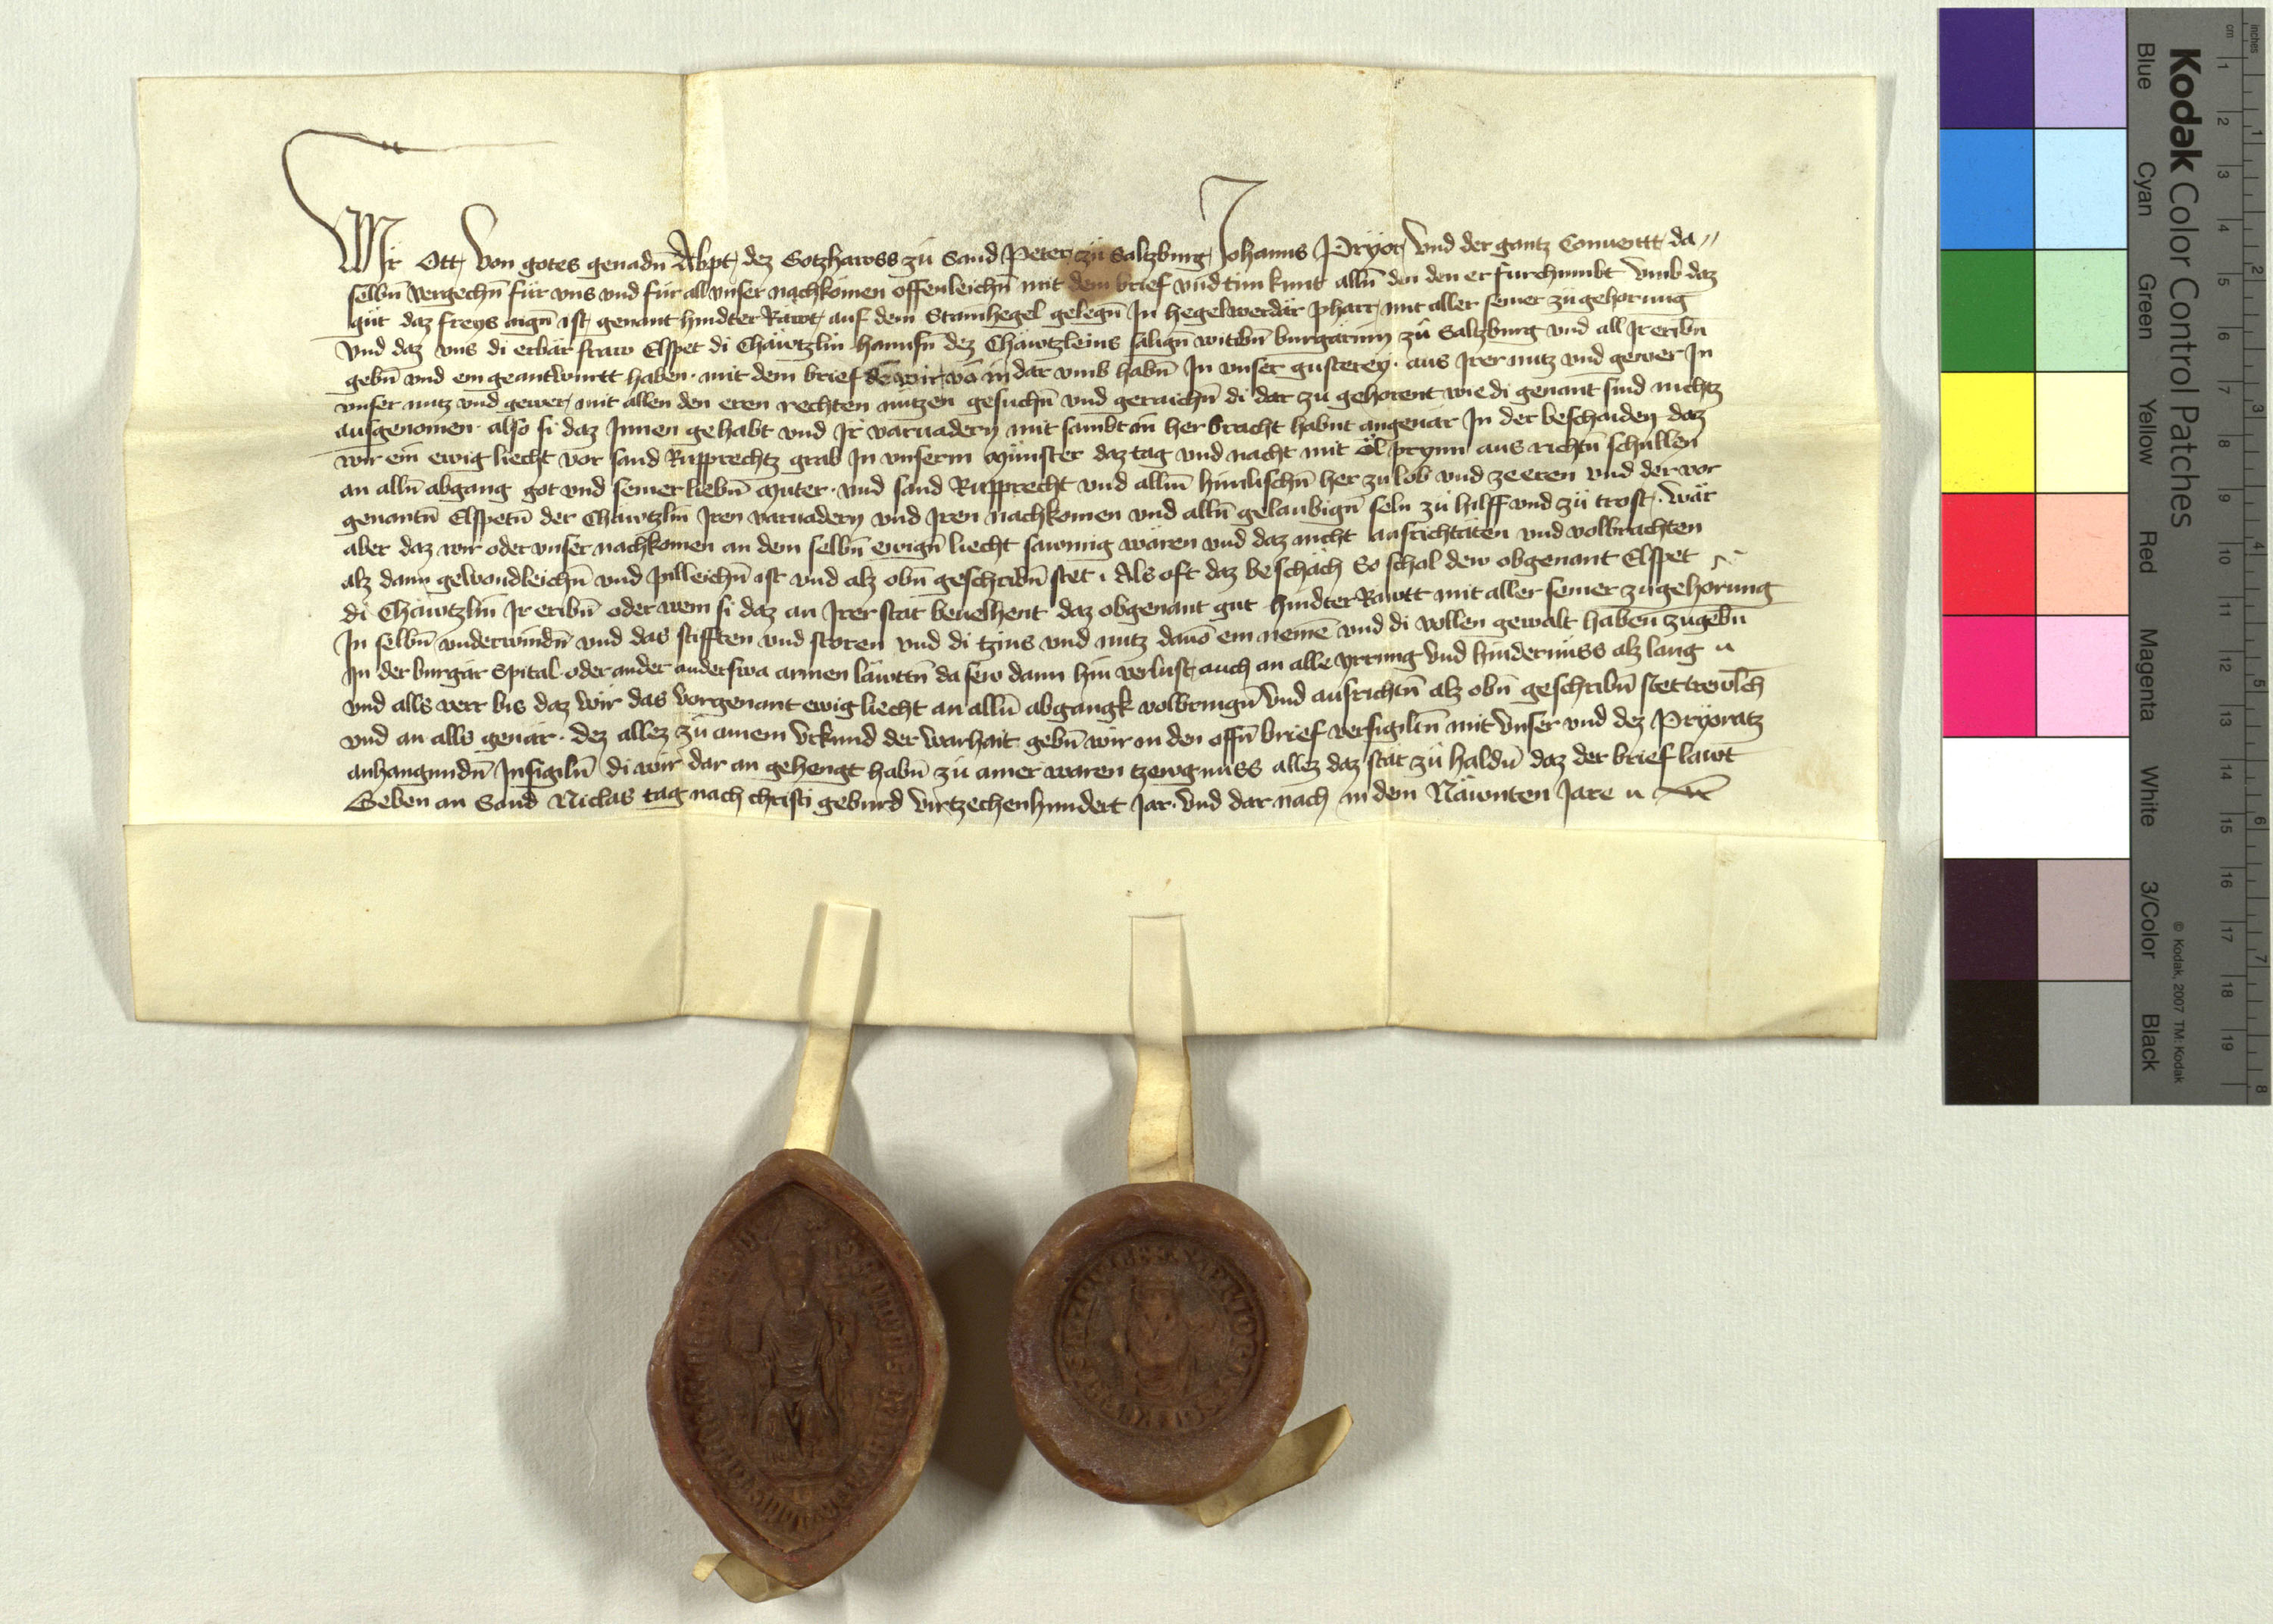 Wir Ott, Von gotes genadn̄ Abpt, dez Gotzhawss zů Sand Peter zů Salzburg, Johanns Pryor, Vnd der gantz Conuentt, da„
selbn̄ Vergechn̄ für vns vnd für all vnser nachkömen offenleichn̄ mit dem brief vnd tůn kunt alln̄ den den er fürchümbt Vmb daz
gůt daz freys aign̄ ist, genant hindter Rawt, auf dem Stainhegel gelegn̄ In hegelwerdär pharr, mit aller seiner zůgehorung
Vnd daz vns di erbär fraw Elspet di Chäwtzlin hannsn̄ dez Chäwtzleins sälign̄ witibn̄ burgärinn zů Saltzburg vnd all Ir eribn̄
gebn̄ vnd ein geantwurtt haben. mit dem brief den wir von in dar vmb habn̄ In vnser gusterey. aus Irer nutz vnd gewer In
vnser nutz vnd gewer, mit allen den eren rechten nützen gesuchn̄ vnd geraichn̄ di dar zu gehorent wie di genant sind nichtz
ausgenomen. also si daz Innen gehabt vnd Ir varuadern mit sambt in her bracht habnt angenär In der beschaiden daz
wir ein ewig liecht vor sand Rupprechtz grab In vnserm Münster daz tag vnd nacht mit öl prynn aus richtn̄ schüllen
an alln̄ abgang got vnd seiner liebn̄ Muter. vnd sand Rupprecht vnd allm̄ himlischn̄ her zu lob vnd ze eren vnd der vor
genantn̄ Elspetn̄ der Chäwtzlin Iren varuadern vnd Iren nachkomen vnd alln̄ gelaubign̄ seln zů hilff vnd zů trost. Wär
aber daz wir oder vnser nachkomen an dem selbn̄ ewign̄ liecht sawmig wären vnd daz nicht ausrichtäten vnd volbrächten
alz dann gewondleichn̄ vnd pilleichn̄ ist vnd alz obn̄ geschribn̄ stet. Als oft daz beschäch So schal dew obgenant Elspet
di Chäwtzlin Ir eribn̄ oder wem si daz an Irer stat beuelhent daz obgenant gut hindter Rawtt mit aller seiner zugehorung
In selbn̄ vnderwindn̄ vnd das stifften vnd storen vnd di tzins vnd nutz dauō ein nemē vnd di vollen gewalt habenn̄ zugebn̄
In der burgär Spital. oder ander anderswa armen läwttn̄ da sew dann hin verlust, auch an alle yrrung Vnd hindernüss alz lang
vnd alls verr bis daz wir das Vorgenant ewig liecht an alln̄ abgangk volbringn̄ Vnd ausrichtn̄ alz obn̄ geschribn̄ stet trewlch
vnd an alls genär. dez allez zů ainem Vrkund der warhait gebn̄ wir in den offn̄ brief versigiltn̄ mit Vnser vnd dez Pryoratz
anhangundn̄ Insigiln̄ di wir dar an gehengt habn̄ zů ainer waren tzewgnüss allez daz stät zů haldn̄ daz der brief lawt
Geben an Sand Niclas tag nach christi geburd virtzechenhundert Jar. Vnd dar nach in dem Näwnten Jare
Kodak Color Control Patches
© Kodak, 2007 TM: Kodak
Blue Cyan Green Yellow Red Magenta White 3/Color Black
inches 1 2 3 4 5 6 7 8
cm 1 2 3 4 5 6 7 8 9 10 11 12 13 14 15 16 17 18 19